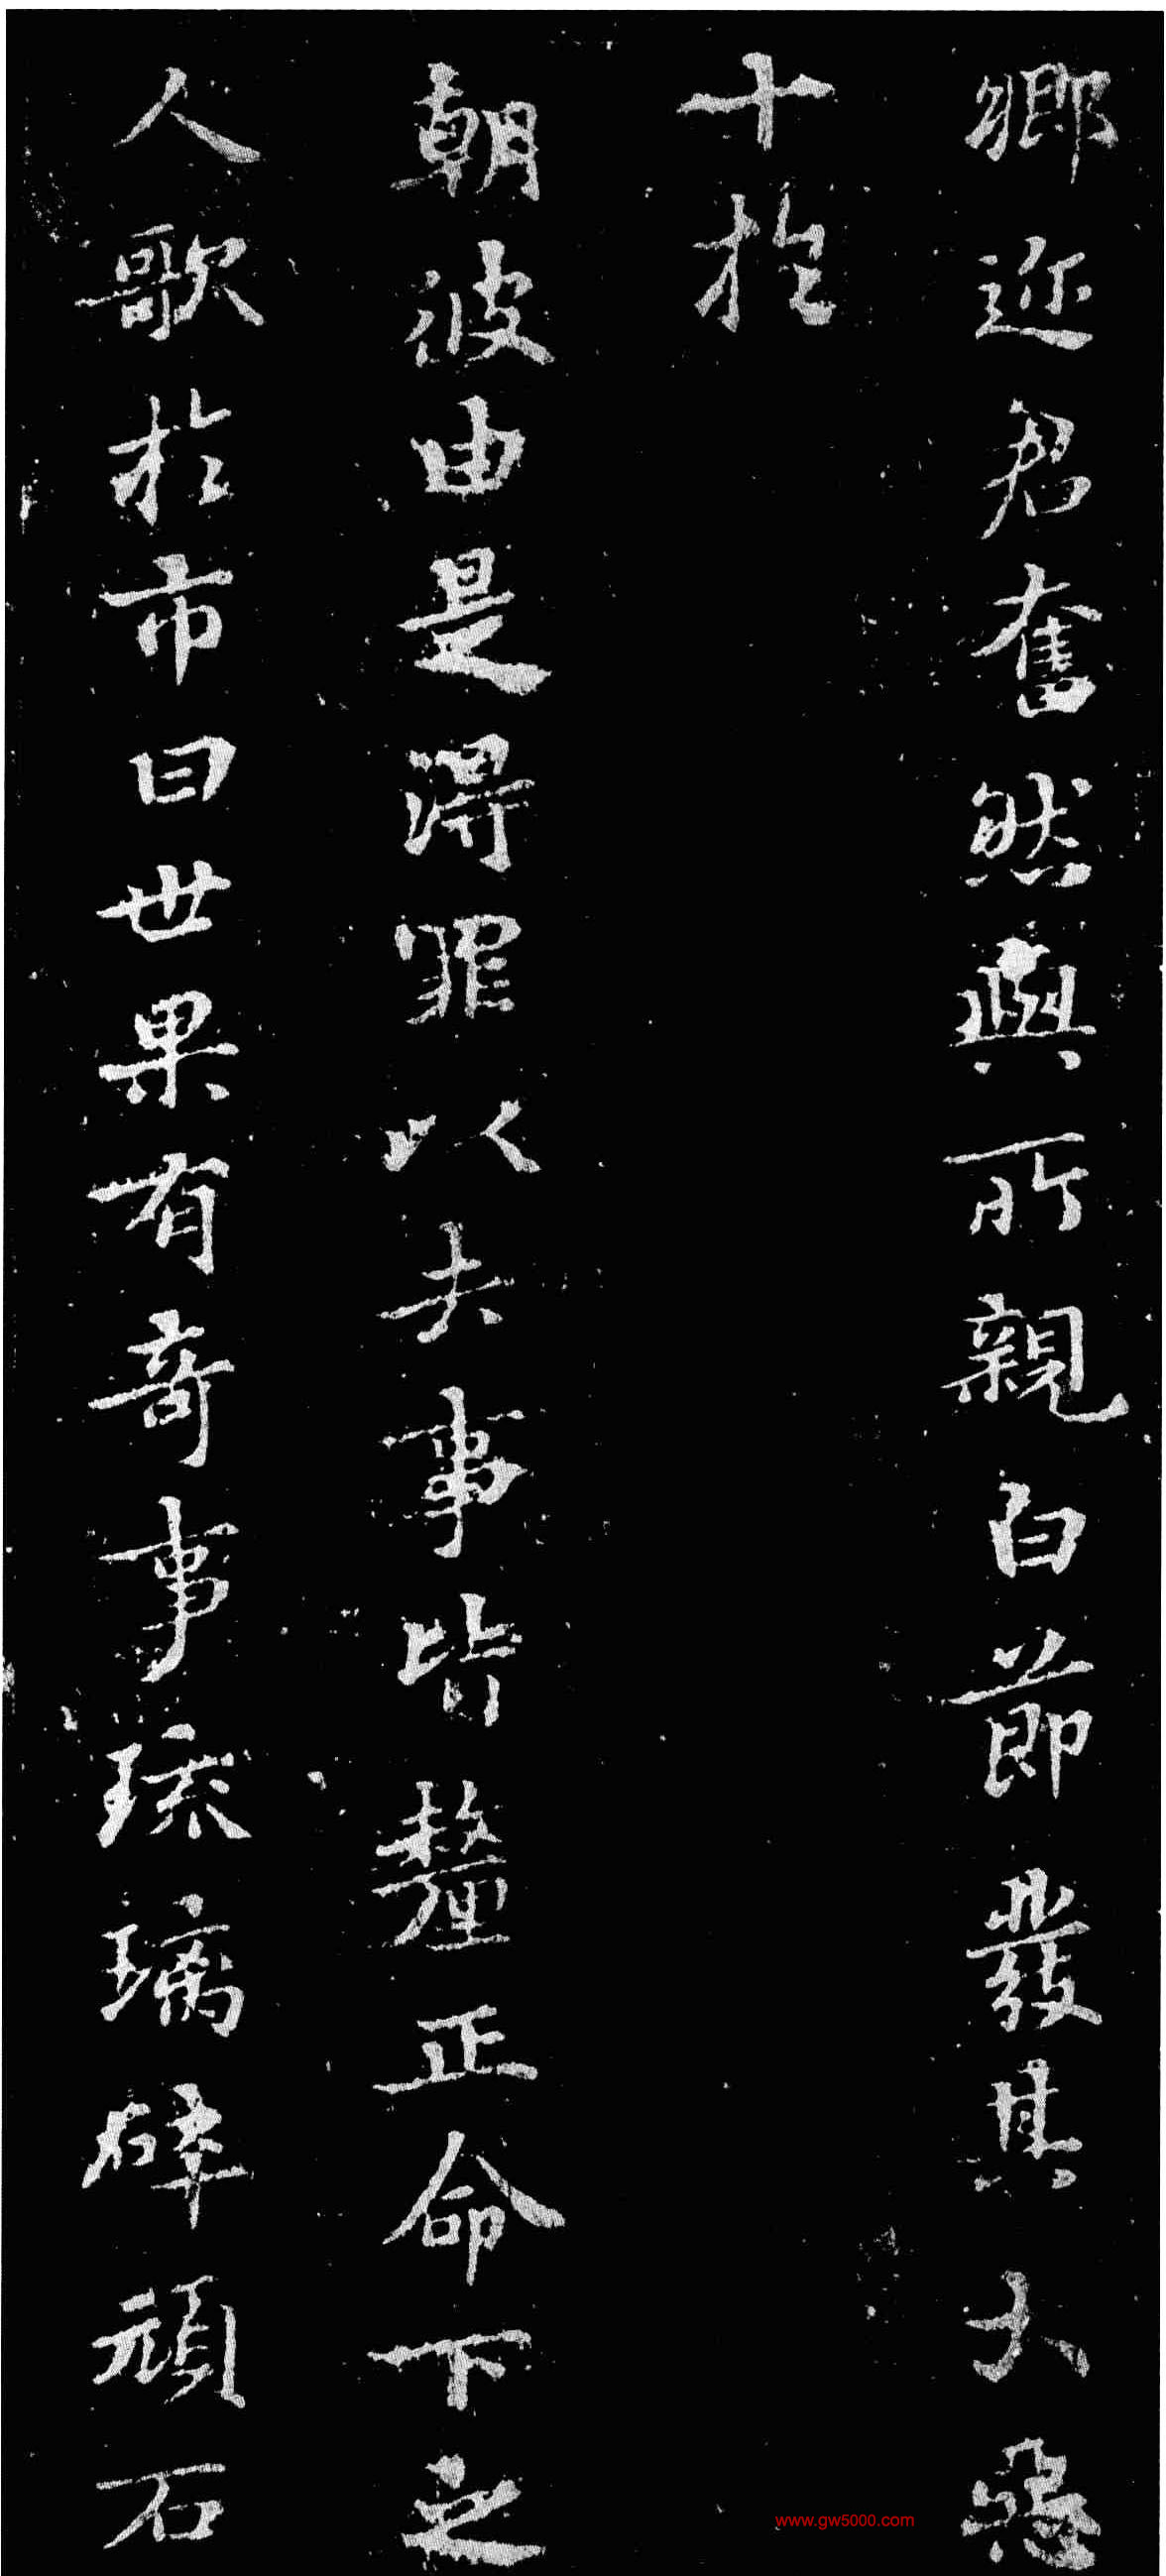 鄉迩君奮然與所親白節發其大惡
十扵
朝彼由是得罪以去事皆釐正命下之
人歌扵市曰世果有奇事琉璃碎頑石
www.gw5000.com